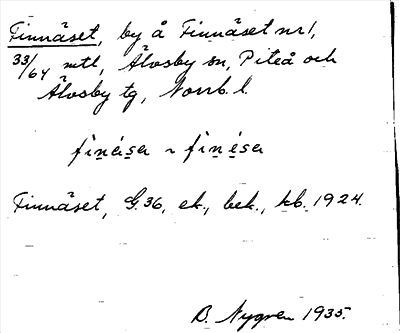 Finnäset, by å Finnäset nr 1,
33/64 mtl, Älvsby sn, Piteå och
Älvsby tg, Norrb. l.
Finnäset, G. 36, ek., bek., kb. 1924.
B. Nygren 1935.